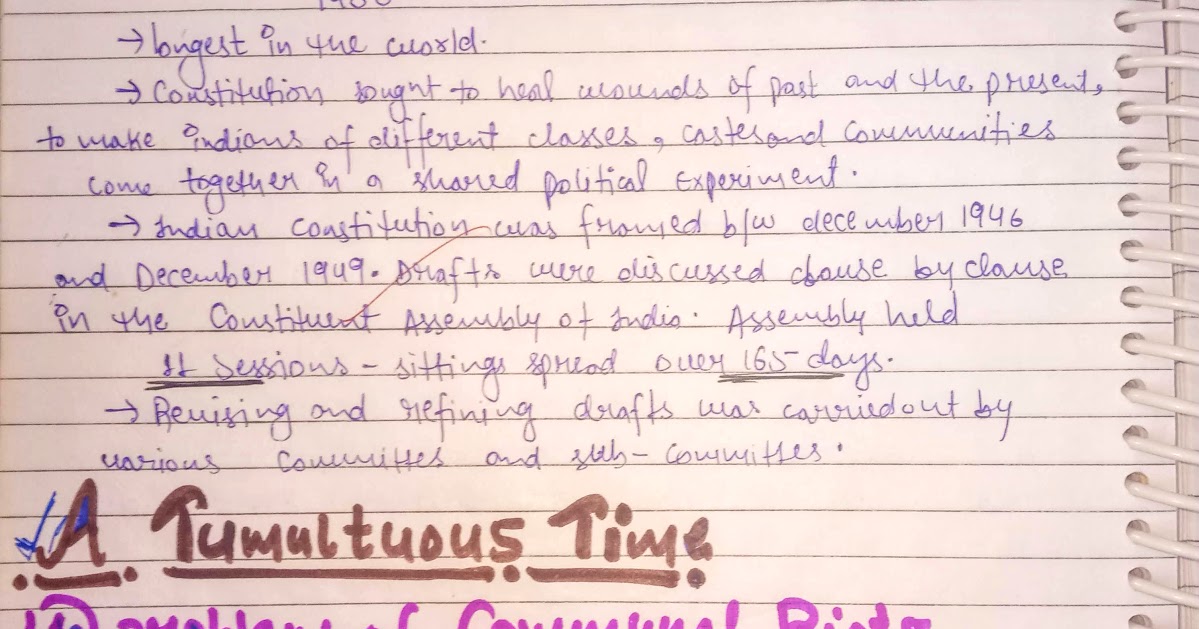 → longest in the world.
→ Constitution sought to heal wounds of past and the present,
to make indians of different classes, castes and communities
come together in a shared political Experiment.
→ Indian Constitution was framed b/w december 1946
and December 1949. Drafts were discussed clause by clause
in the Constituent Assembly of India. Assembly held
11 Sessions - sittings spread over 165 days.
→ Revising and refining drafts was carried out by
various Committees and sub-committees.
A Tumultuous Time
problem of Communal Riots